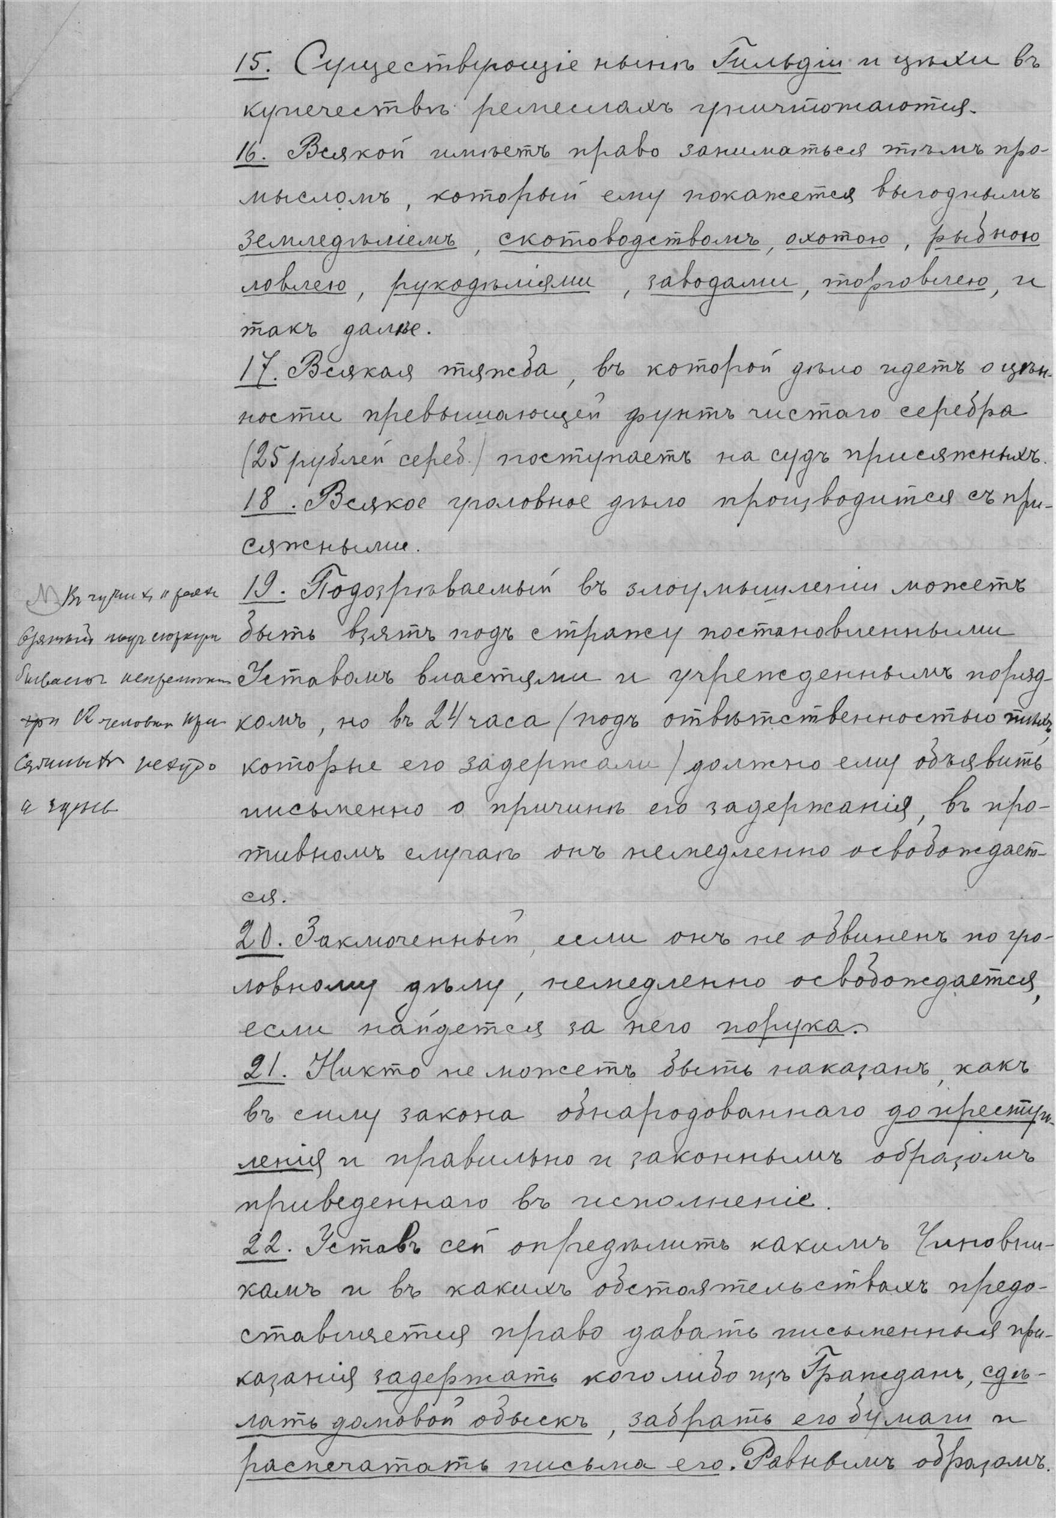 15. Существующіе нынѣ Гильдіи и цѣхи въ
купечествѣ ремеслахъ уничтожаются.
16. Всякой имѣетъ право заниматься тѣмъ про-
мысломъ, который ему покажется выгоднымъ
земледѣліемъ, скотоводствомъ, охотою, рыбною
ловлею, рукодѣліями, заводами, торговлею, и
такъ далѣе.
17. Всякая тяжба, въ которой дѣло идетъ о цѣн-
ности превышающей фунтъ чистаго серебра
(25 рублей сереб.) поступаетъ на судъ присяжныхъ.
18. Всякое уголовное дѣло производится съ при-
сяжными.
19. Подозрѣваемый въ злоумышленіи можетъ
быть взятъ подъ стражу постановленными
Уставомъ властями и учрежденнымъ поряд-
комъ, но въ 24 часа (подъ отвѣтственностью тѣхъ,
которые его задержали) должно ему объявить
письменно о причинѣ его задержанія, въ про-
тивномъ случаѣ онъ немедленно освобождает-
ся.
20. Заключенный, если онъ не обвиненъ по уго-
ловному дѣлу, немедленно освобождается,
если найдется за него порука.
21. Никто не можетъ быть наказанъ, какъ
въ силу закона обнародованнаго до преступ-
ленія и правильно и законнымъ образомъ
приведеннаго въ исполненіе.
22. Уставъ сей опредѣлитъ какимъ Чиновни-
камъ и въ какихъ обстоятельствахъ предо-
ставляется право давать письменныя при-
казанія задержать кого либо изъ Гражданъ, сдѣ-
лать домовой обыскъ, забрать его бумаги и
распечатать письма его. Равнымъ образомъ.
12 человѣкъ при